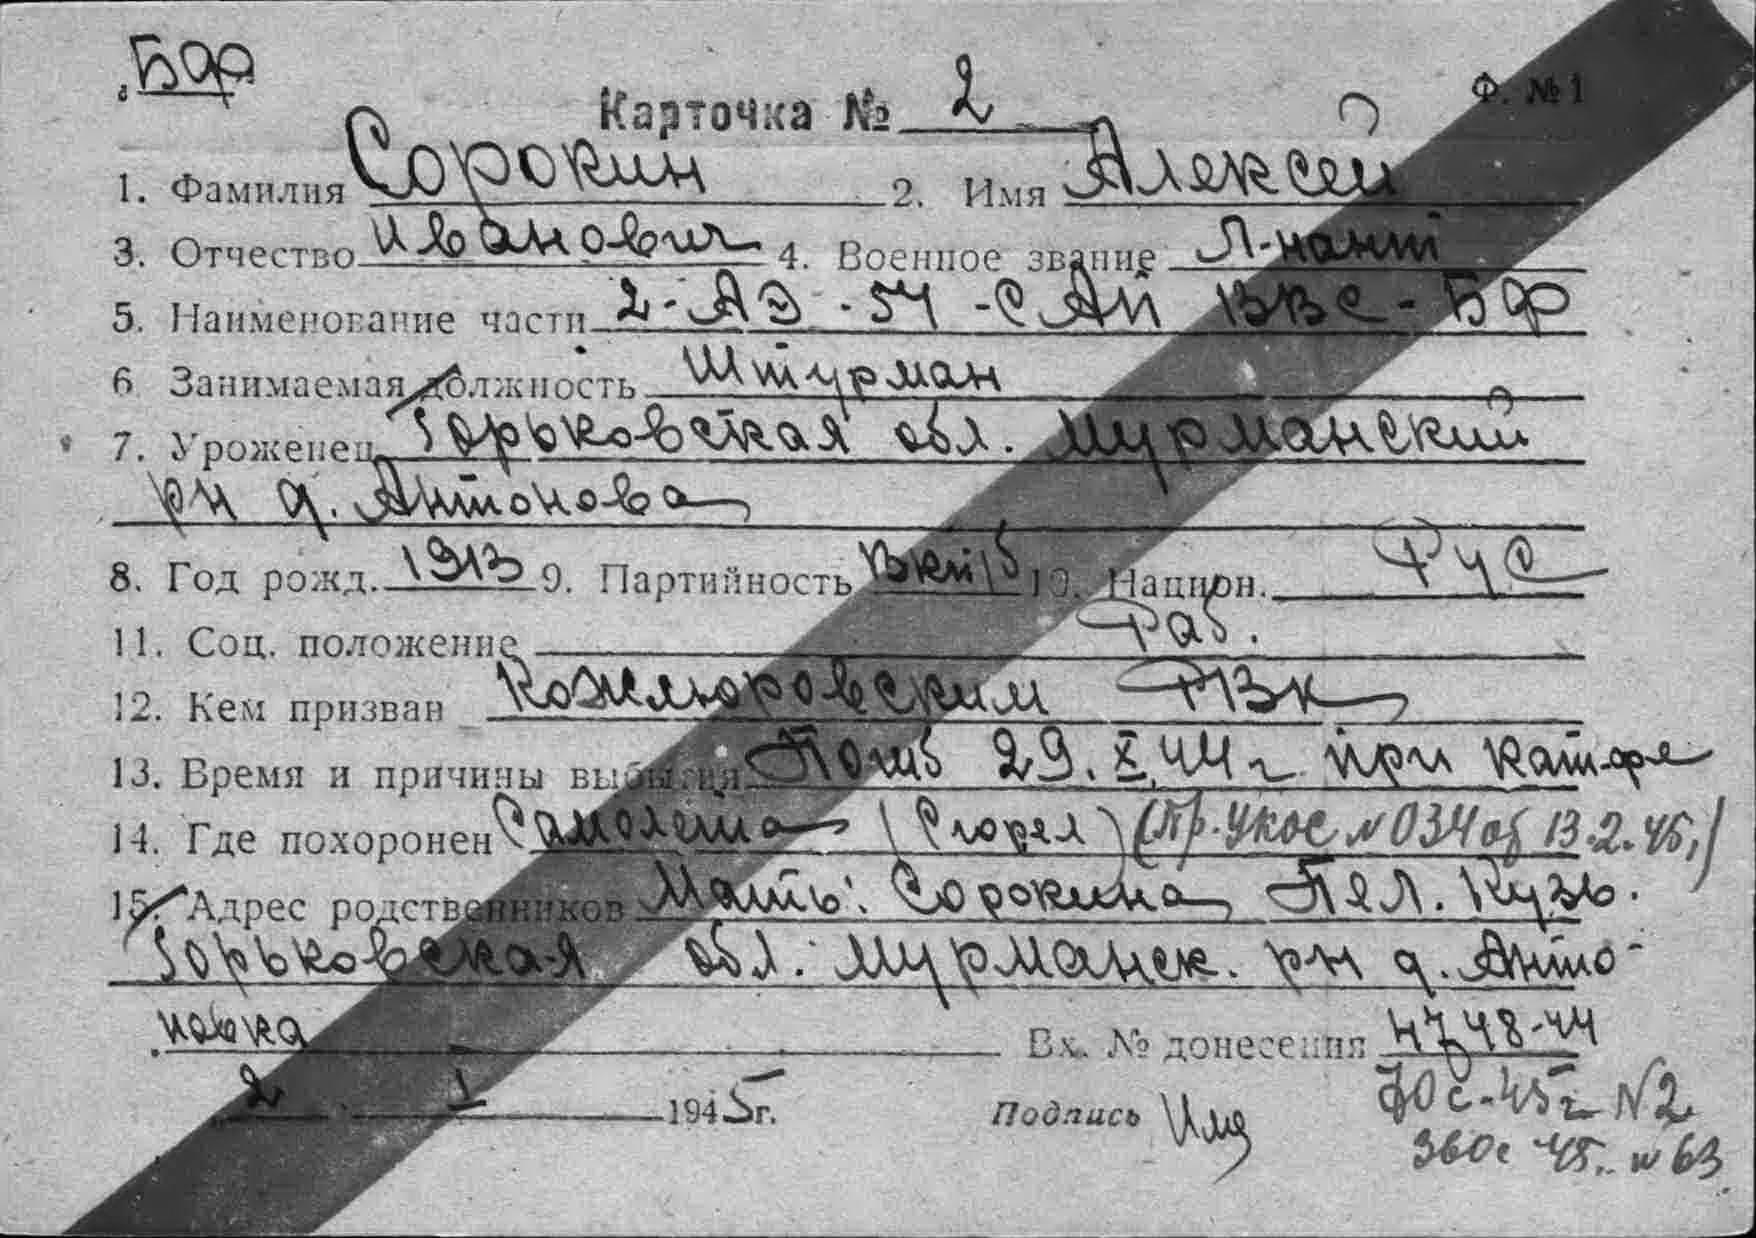 БФ
Карточка № 2 Ф. № 1
1. Фамилия Сорокин 2. Имя Алексей
3. Отчество Иванович 4. Военное звание Л-нант
5. Наименование части 2-АЭ-51-САП ВВС-БФ
6 Занимаемая должность Штурман
7. Уроженец Горьковская обл. Мурманский
рн д. Антонова
8. Год рожд. 1913 9. Партийность ВКП/б 10. Национ. Рус
11. Соц. положение Раб.
12. Кем призван РВК
13. Время и причины выбытия Погиб 29.X.44г при кат-фе
14. Где похоронен самолета (Сгорел) (Пр. УКОС № 034 об 13.2.45.)
15. Адрес родственников Мать: Сорокина Пел. Кузь.
Горьковская обл. Мурманск. рн д. Анто-
новка
Вх. № донесения 4748-44
2 I 1945г. Подпись
45г №2
45. №63